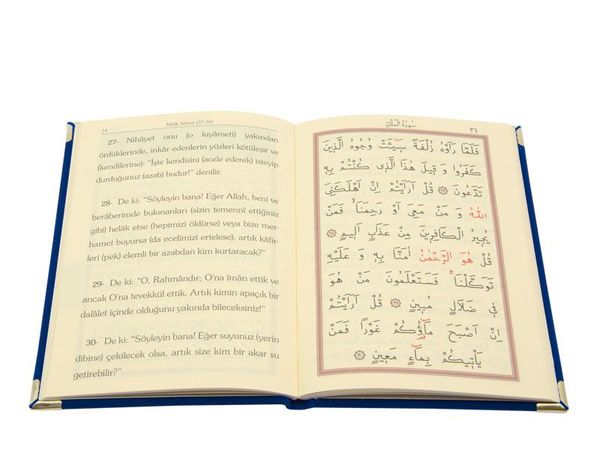 34 Mülk Sûresi (27-30)
27- Nihâyet onu (o kıyâmeti) yakından
gördüklerinde, inkâr edenlerin yüzleri kötüleşir ve
(kendilerine): “İşte kendisini (acele ederek) isteyip
durduğunuz (azab) budur!” denilir.
28- De ki: “Söyleyin bana! Eğer Allah, beni ve
berâberimde bulunanları (sizin temennî ettiğiniz
gibi) helâk etse (hepimizi öldürse) veya bize mer-
hamet buyursa (da ecelimizi ertelese), artık kâfir-
leri (pek) elemli bir azabdan kim kurtaracak?”
29- De ki: “O, Rahmândır; O'na îman ettik ve
ancak O'na tevekkül ettik. Artık kimin apaçık bir
dalâlet içinde olduğunu yakında bileceksiniz!”
30- De ki: “Söyleyin bana! Eğer suyunuz (yerin
dibine) çekilecek olsa, artık size kim bir akar su
getirebilir?”
سُورَةُ الْمُلْكِ ٣٤
فَلَمَّا رَاَوْهُ زُلْفَةً سٓيـَٔتْ وُجُوهُ الَّذ۪ينَ
كَفَرُوا وَ ق۪يلَ هٰذَا الَّذ۪ي كُنْتُمْ بِه۪
تَدَّعُونَ ۞ قُلْ اَرَاَيْتُمْ اِنْ اَهْلَكَنِيَ
اللّٰهُ وَ مَنْ مَعِيَ اَوْ رَحِمَنَاۙ فَمَنْ
يُج۪يرُ الْكَافِر۪ينَ مِنْ عَذَابٍ اَل۪يمٍ ۞
قُلْ هُوَ الرَّحْمٰنُ اٰمَنَّا بِه۪ وَ عَلَيْهِ
تَوَكَّلْنَاۚ فَسَتَعْلَمُونَ مَنْ هُوَ
ف۪ي ضَلَالٍ مُب۪ينٍ ۞ قُلْ اَرَاَيْتُمْ
اِنْ اَصْبَحَ مَٓاؤُ۬كُمْ غَوْرًا فَمَنْ
يَأْت۪يكُمْ بِمَٓاءٍ مَع۪ينٍ ۞